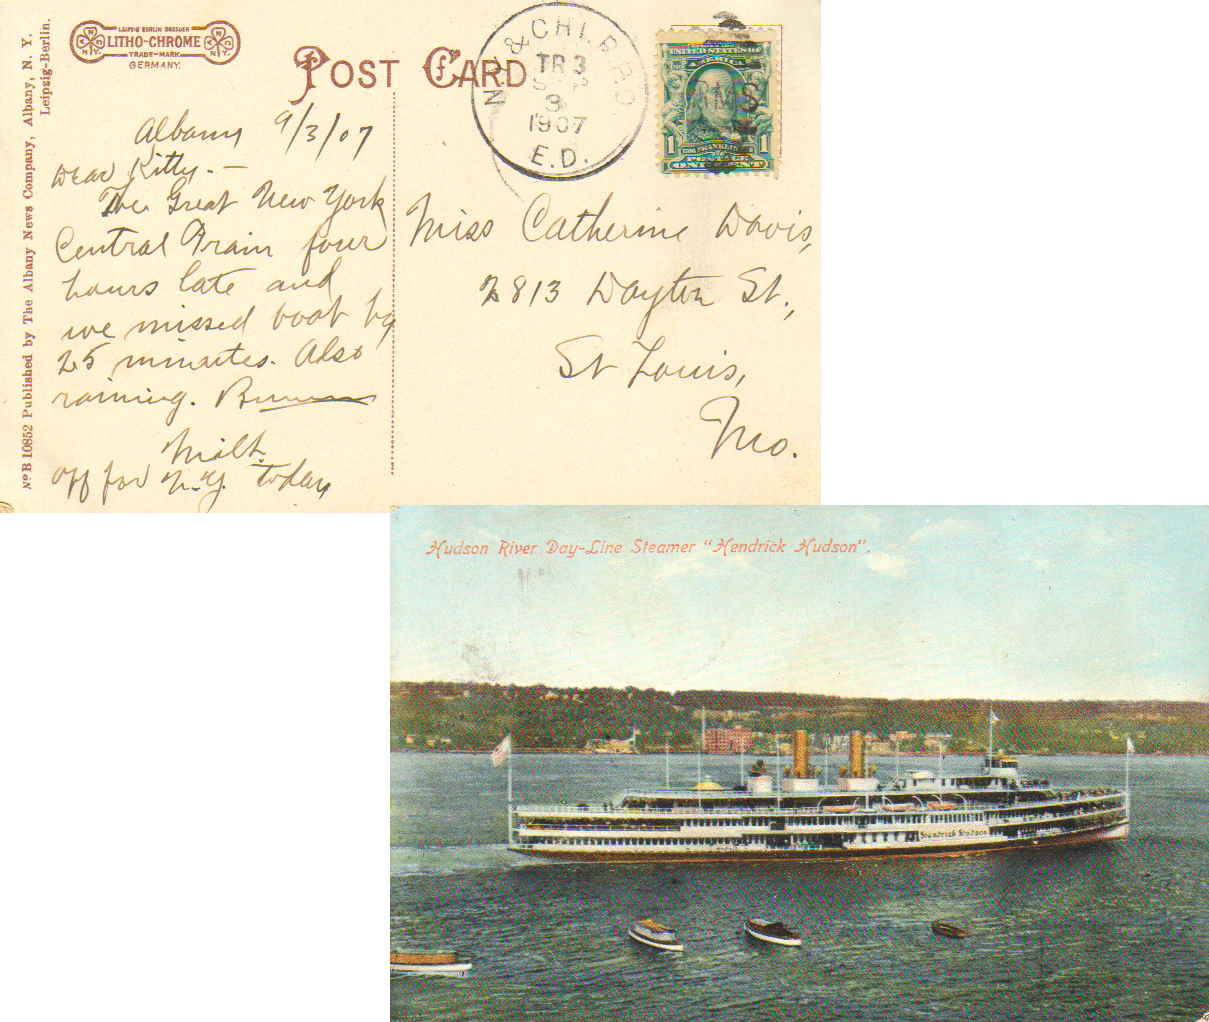 No B 10852 Published by The Albany News Company, Albany, N. Y.
Leipzig-Berlin.
LEIPZIG BERLIN DRESDEN
LITHO-CHROME
TRADE-MARK
GERMANY.
POST CARD
N.Y. & CHI. R.P.O.
TR 3
SEP
3
1907
E.D.
RMS
UNITED STATES OF
AMERICA
1 1
POSTAGE
ONE CENT
Albany 9/3/07
Dear Kitty. —
The Great New York
Central Train four
hours late and
we missed boat by
25 minutes. Also
raining.
Milt.
off for N.Y. today
Miss Catherine Davis,
2813 Dayton St.,
St Louis,
Mo.
Hudson River Day-Line Steamer "Hendrick Hudson".
Hendrick Hudson